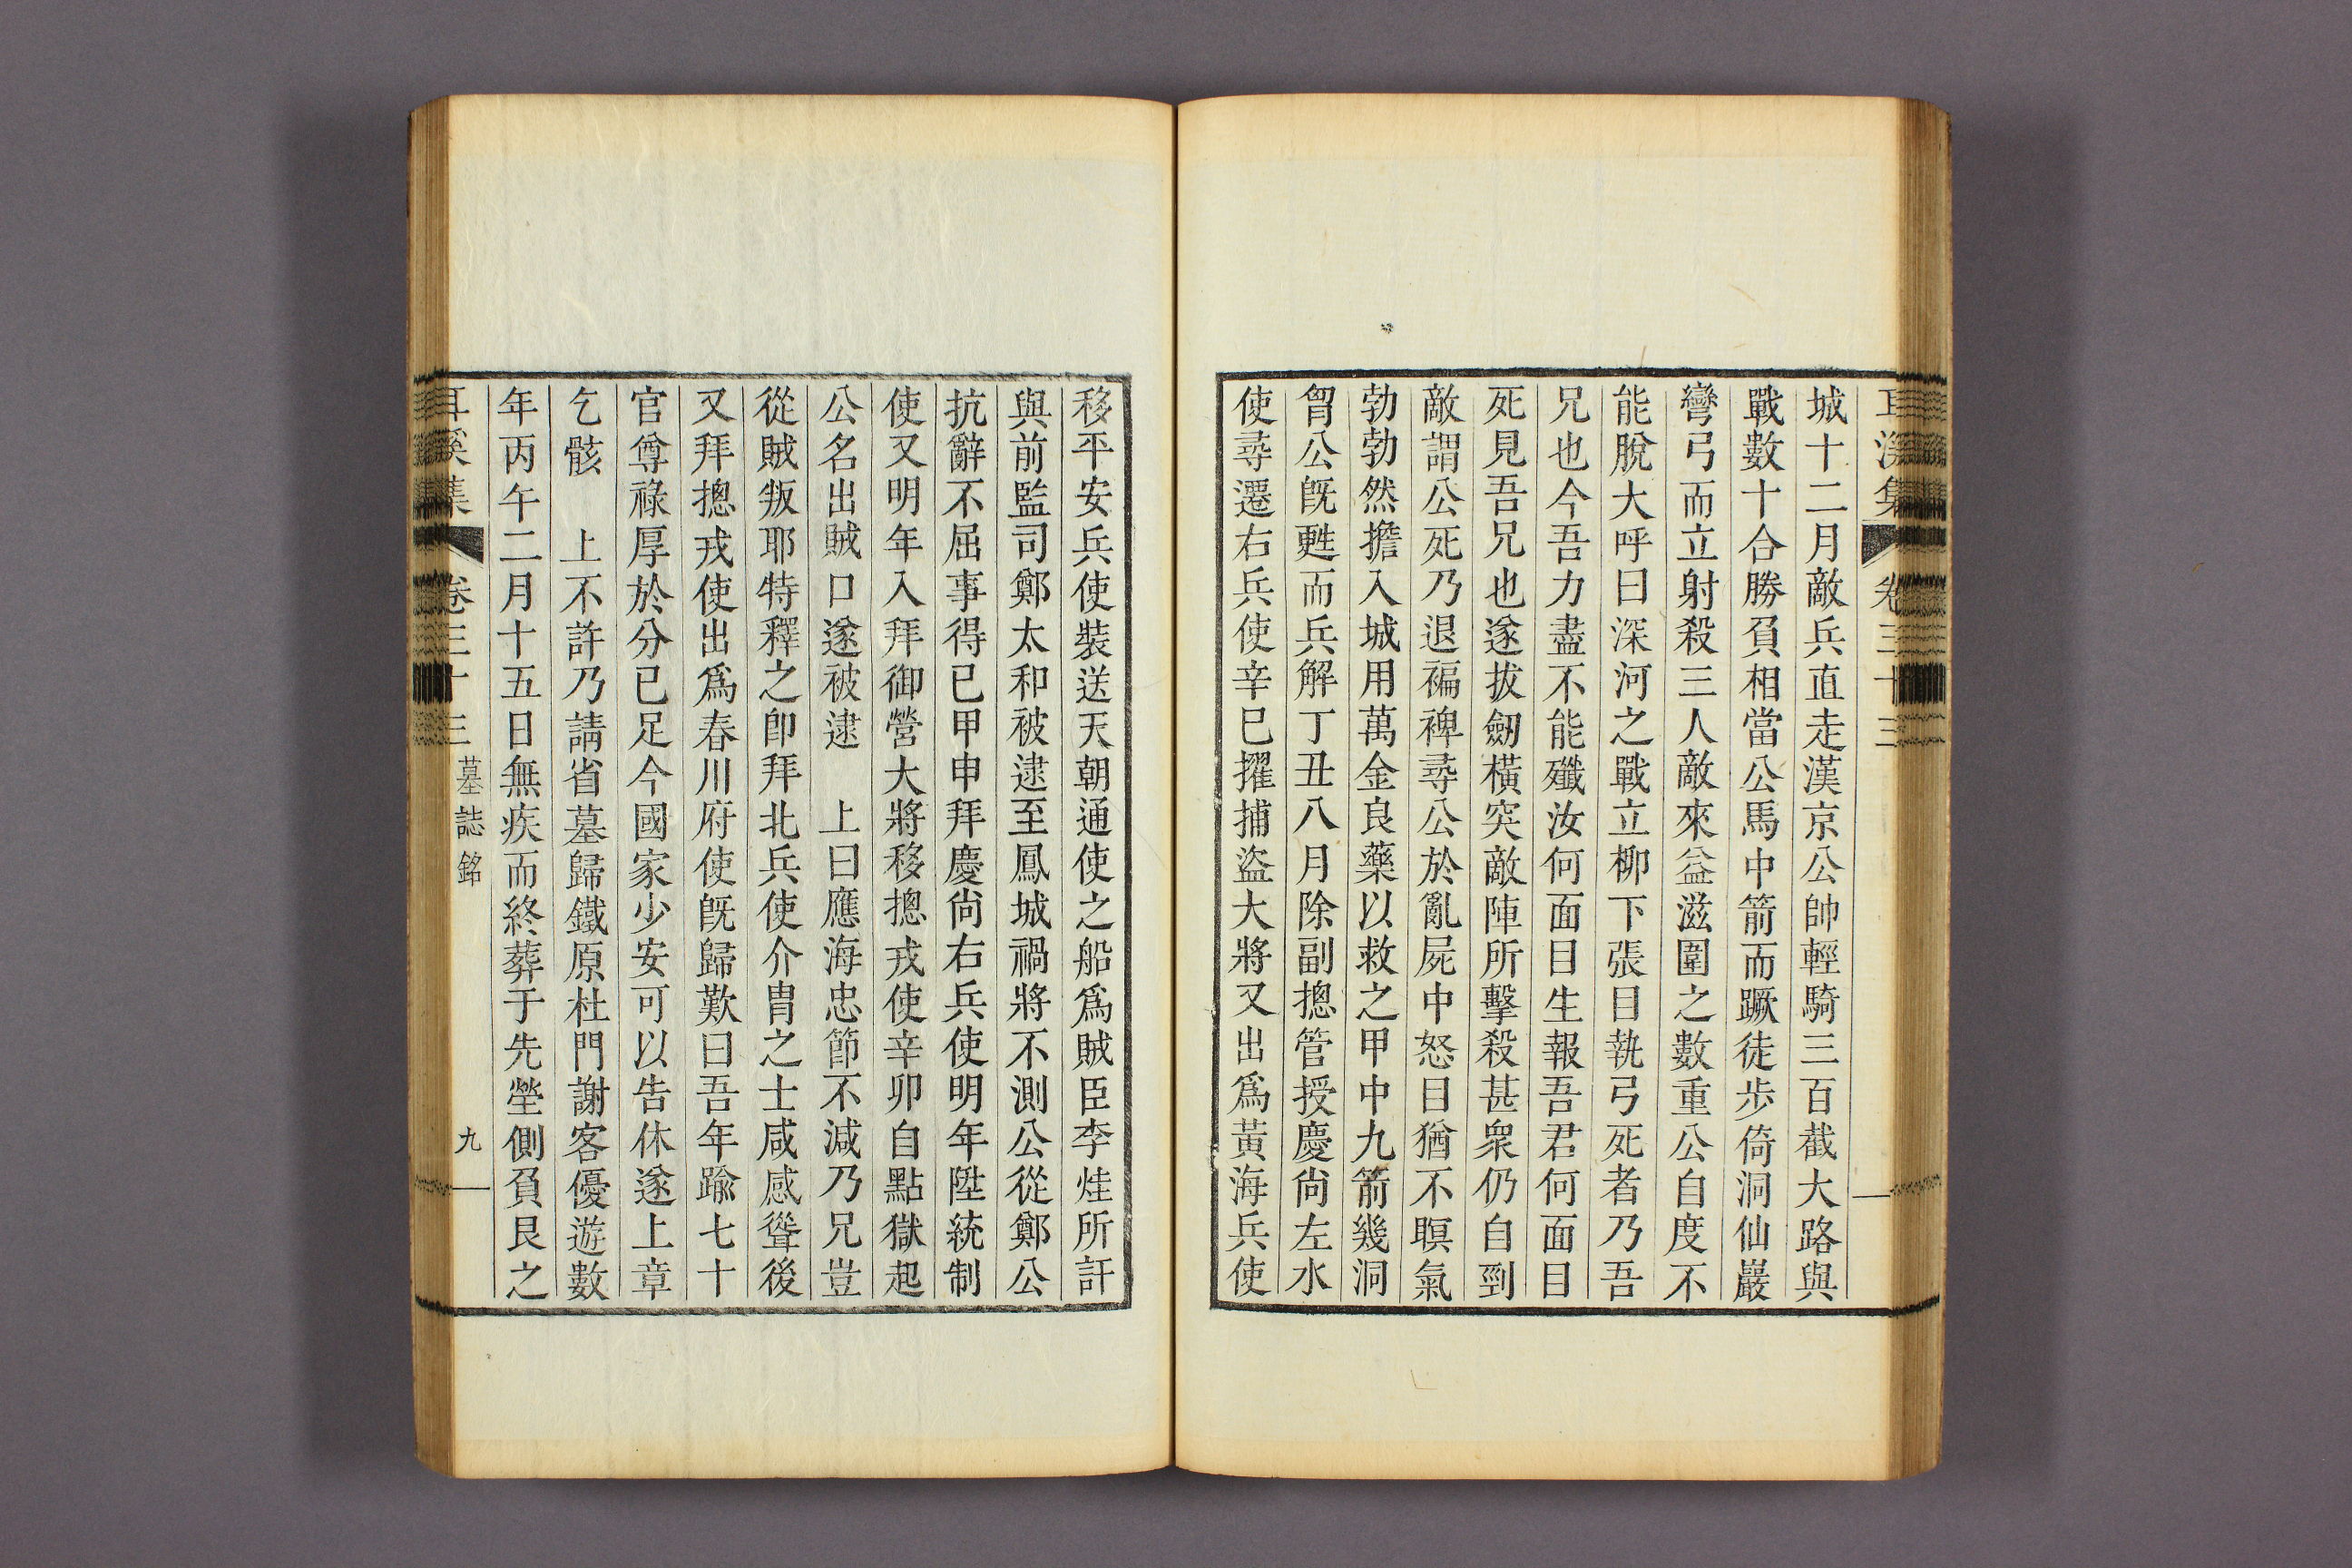 耳溪集 卷三十三
城十二月敵兵直走漢京公帥輕騎三百截大路與
戰數十合勝負相當公馬中箭而蹶徒步倚洞仙巖
彎弓而立射殺三人敵來益滋圍之數重公自度不
能脫大呼曰深河之戰立柳下張目執弓死者乃吾
兄也今吾力盡不能殲汝何面目生報吾君何面目
死見吾兄也遂拔劒橫突敵陣所擊殺甚衆仍自剄
敵謂公死乃退褊裨尋公於亂屍中怒目猶不瞑氣
勃勃然擔入城用萬金良藥以救之甲中九箭幾洞
胷公旣甦而兵解丁丑八月除副摠管授慶尙左水
使尋遷右兵使辛巳擢捕盜大將又出爲黃海兵使
移平安兵使裝送天朝通使之船爲賊臣李烓所訐
與前監司鄭太和被逮至鳳城禍將不測公從鄭公
抗辭不屈事得已甲申拜慶尙右兵使明年陞統制
使又明年入拜御營大將移摠戎使辛卯自點獄起
公名出賊口遂被逮 上曰應海忠節不減乃兄豈
從賊叛耶特釋之卽拜北兵使介冑之士咸感聳後
又拜摠戎使出爲春川府使旣歸歎曰吾年踰七十
官尊祿厚於分已足今國家少安可以告休遂上章
乞骸 上不許乃請省墓歸鐵原杜門謝客優遊數
年丙午二月十五日無疾而終葬于先塋側負艮之
耳溪集 卷三十三 墓誌銘 九